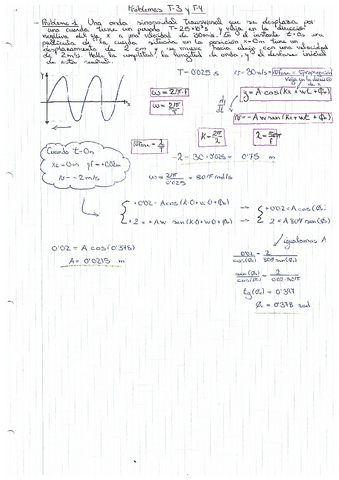 Problemas T-3 y T-4
- Problema 1 Una onda sinusoidal transversal que se desplaza por
una cuerda tiene un periodo T = 25 ms y viaja en la dirección
negativa del eje x a una velocidad de 30 m/s. En el instante t=0s una
partícula de la cuerda situada en la posición x=0m tiene un
desplazamiento de 2 cm y se mueve hacia abajo con una velocidad
de 2 m/s. Halle la amplitud, la longitud de onda, y el desfase inicial
de esta señal.
T = 0'025 s v = 30 m/s
y
x
ω = 2π·f
ω = 2π/T
dy/dt
y = A cos(kx + ωt + φ₀)
v = -Aω sen(kx + ωt + φ₀)
k = 2π/λ
Cuando t=0s
x = 0m y = +0'02m
v = -2 m/s
λ = 30 · 0'025 = 0'75 m
ω = 2π/0'025 = 80π rad/s
+0'02 = A cos(k·0 + ω·0 + φ₀) → +0'02 = A cos(φ₀)
+2 = +Aω sen(k·0 + ω·0 + φ₀) → 2 = A 80π sen(φ₀)
igualamos A
0'02 = A cos(0'378)
A = 0'0215 m
0'02/cos(φ₀) = 2/80π sen(φ₀)
sen(φ₀)/cos(φ₀) = 2/0'02·80π
tg(φ₀) = 0'397
φ₀ = 0'378 rad